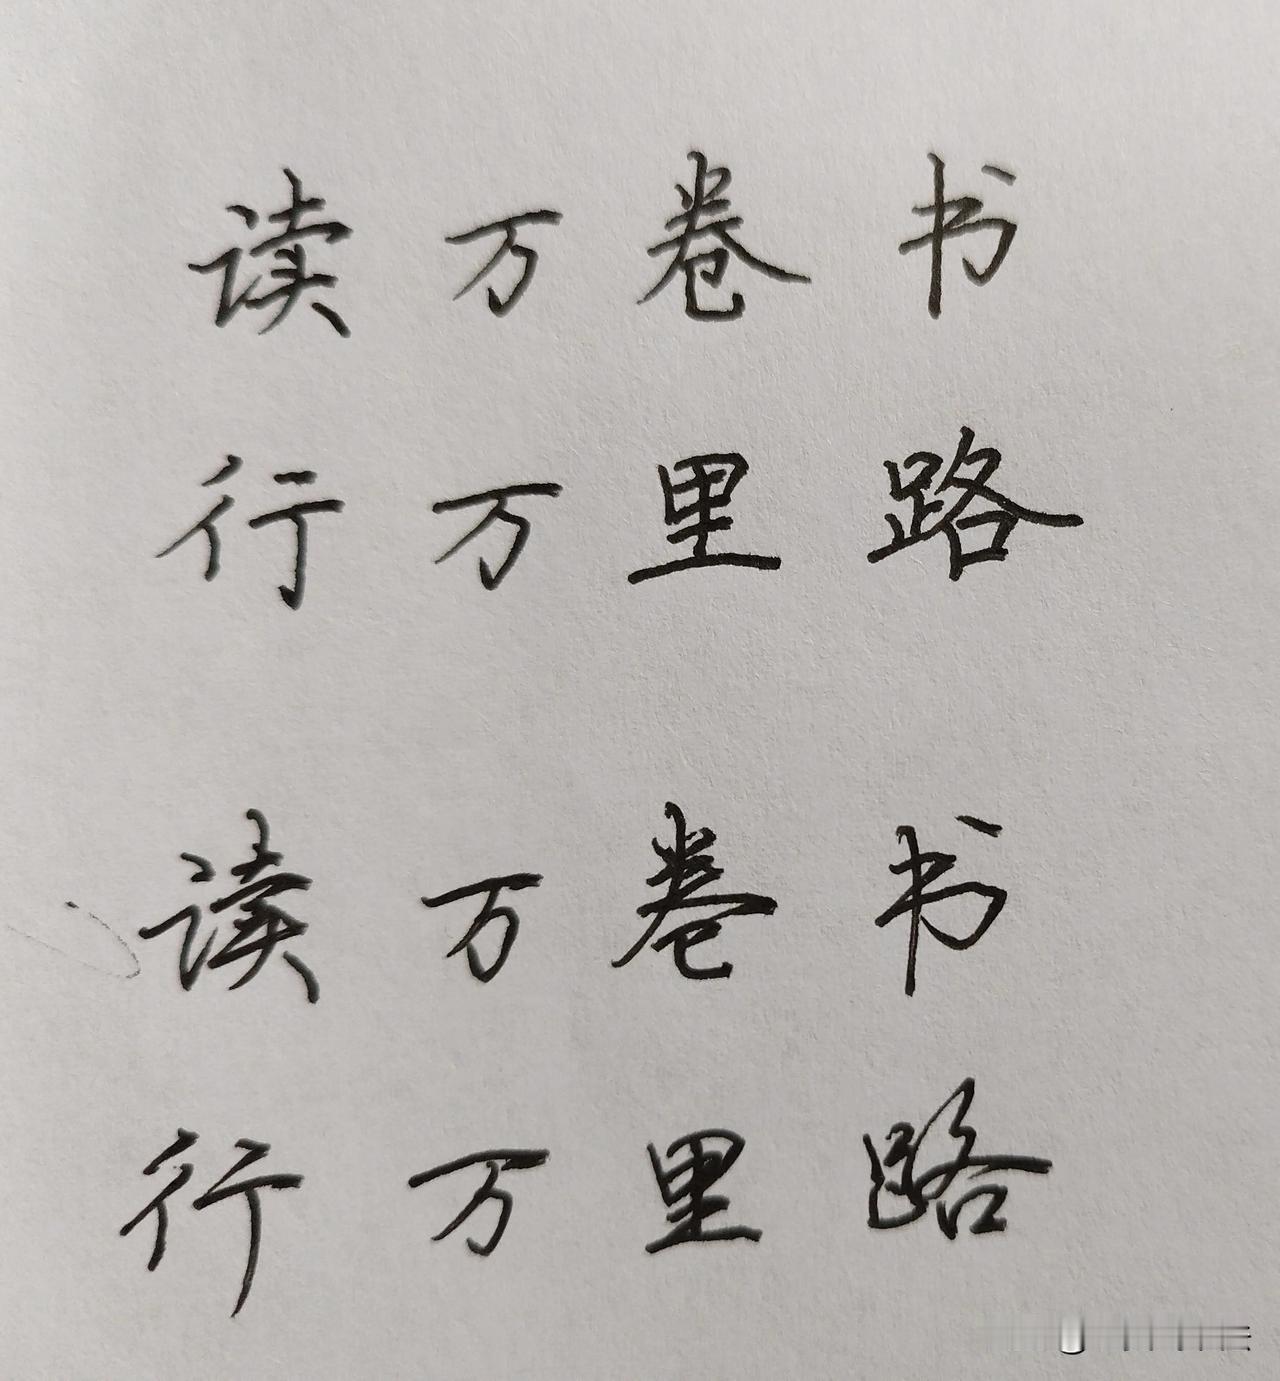 读万卷书
行万里路
读万卷书
行万里路